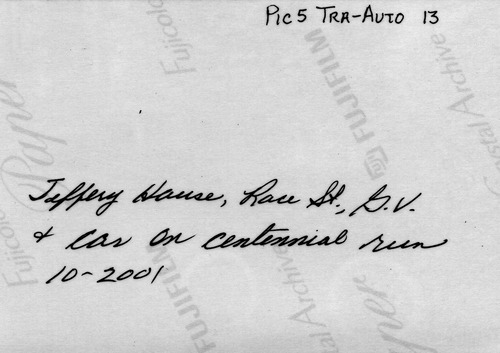 Pic 5 TRA-AUTO 13
Fujicolor Paper
FUJIFILM
Crystal Archive
Jeffery House, Race St., G.V.
& car on centennial run
10-2001
FUJIFILM
Crystal Archive